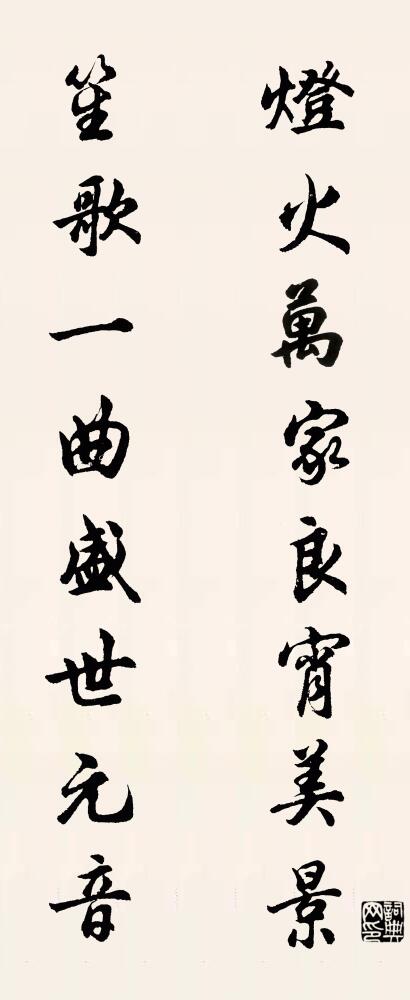 燈火萬家良宵美景
笙歌一曲盛世元音
詞典網印